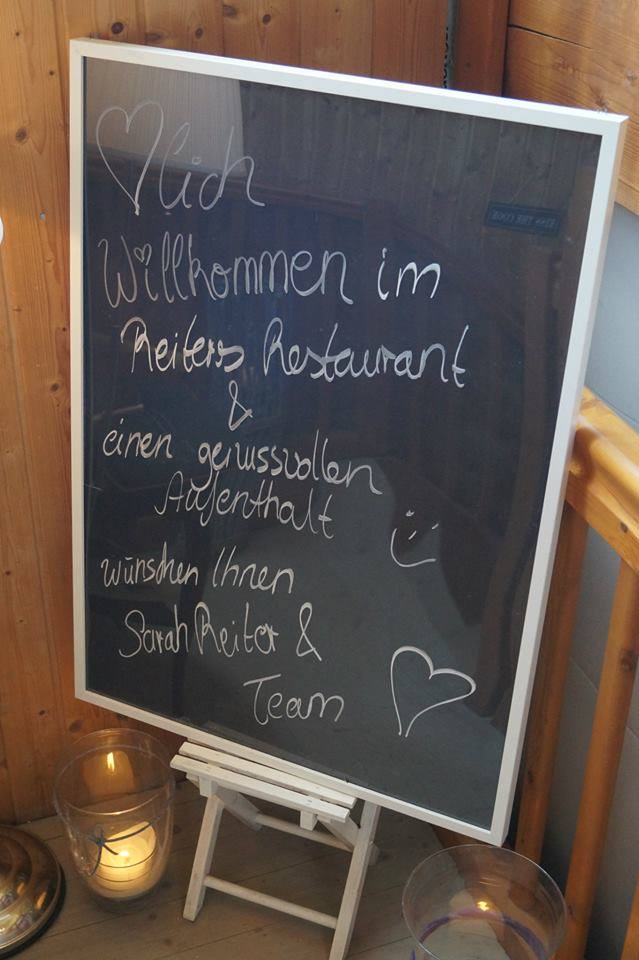 ♡lich
Willkommen im
Reiters Restaurant
&
einen genussvollen
Aufenthalt
wünschen Ihnen
Sarah Reiter &
Team